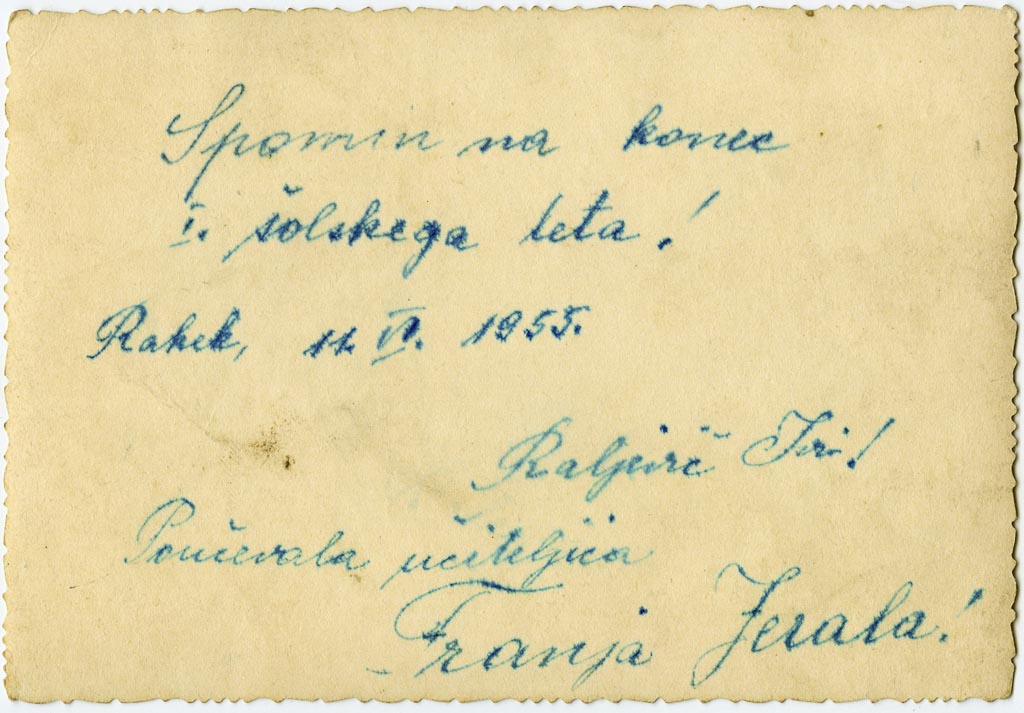 Spomin na konec
I. šolskega leta!
Rakek, 11. VI. 1955.
Raljevič Ivi!
Poučevala učiteljica
Franja Jerala!